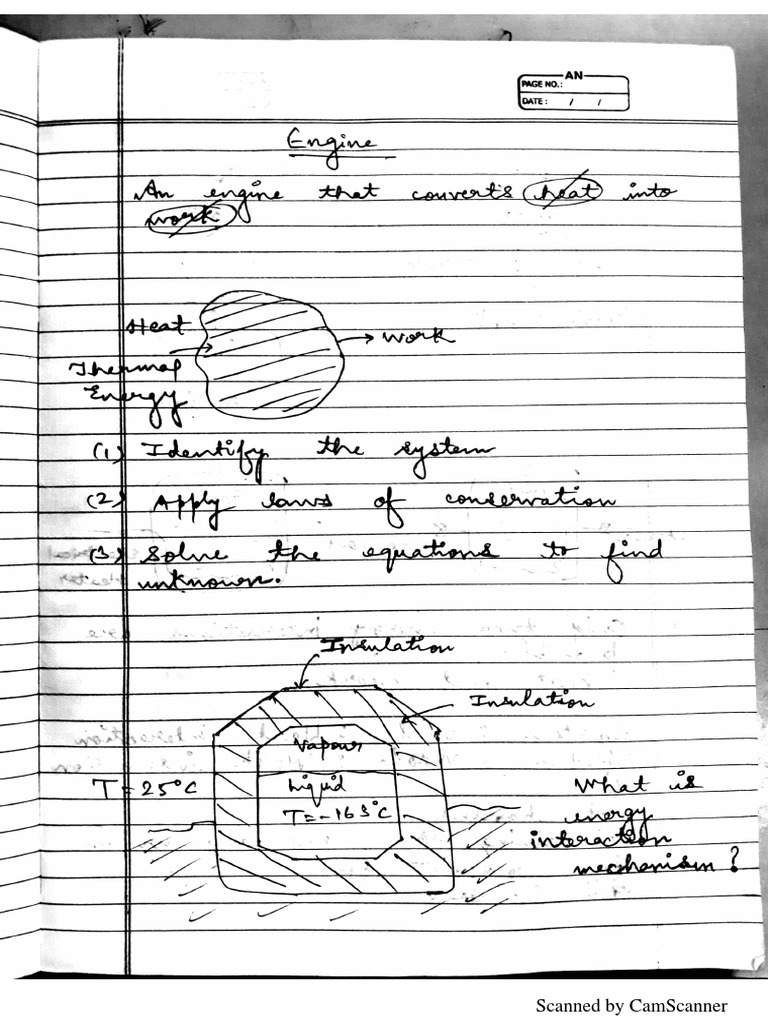 AN
PAGE NO.:
DATE: / /
Engine
An engine that converts heat into
work
Heat
Thermal
Energy
work
(1) Identify the system
(2) Apply laws of conservation
(3) Solve the equations to find
unknown.
Insulation
Insulation
Vapour
Liquid
T=-163°C
T = 25°C
What is
energy
interaction
mechanism?
Scanned by CamScanner